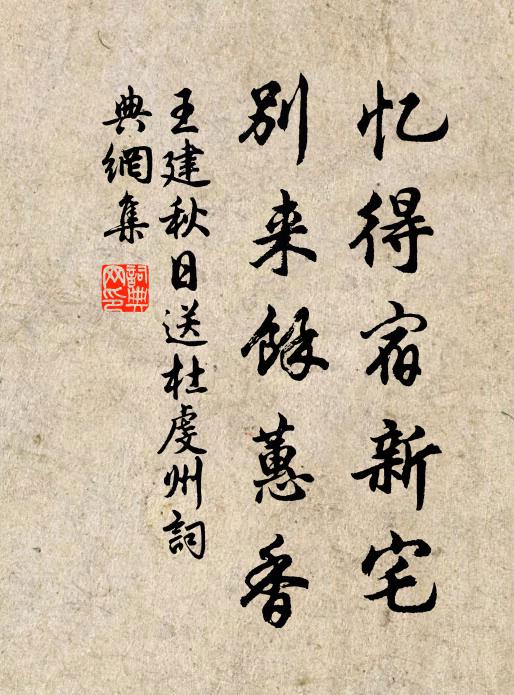 忆得宿新宅
别来餘蕙香
王建秋日送杜虔州詞
典網集
詞典網印